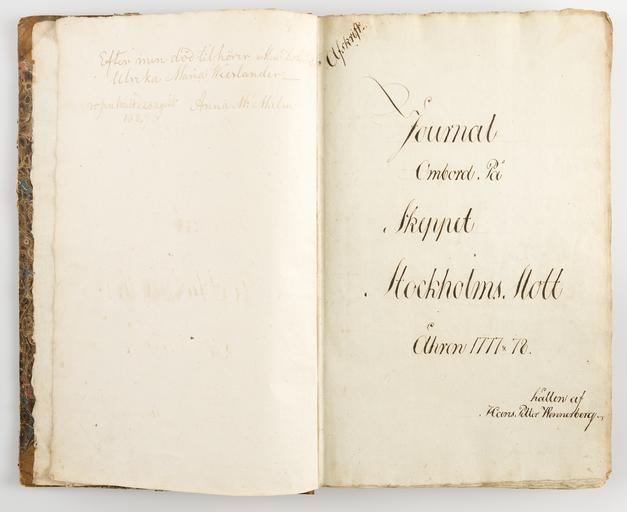 Efter min död tilhörer
Ulrika Maria Westlander
Anna M: Malm
Afskrift.
Journal
Ombord. På
Skeppet
Stockholms. Slott
Åhren 1777 & 78.
hållen af
Hans. Petter Wennerberg